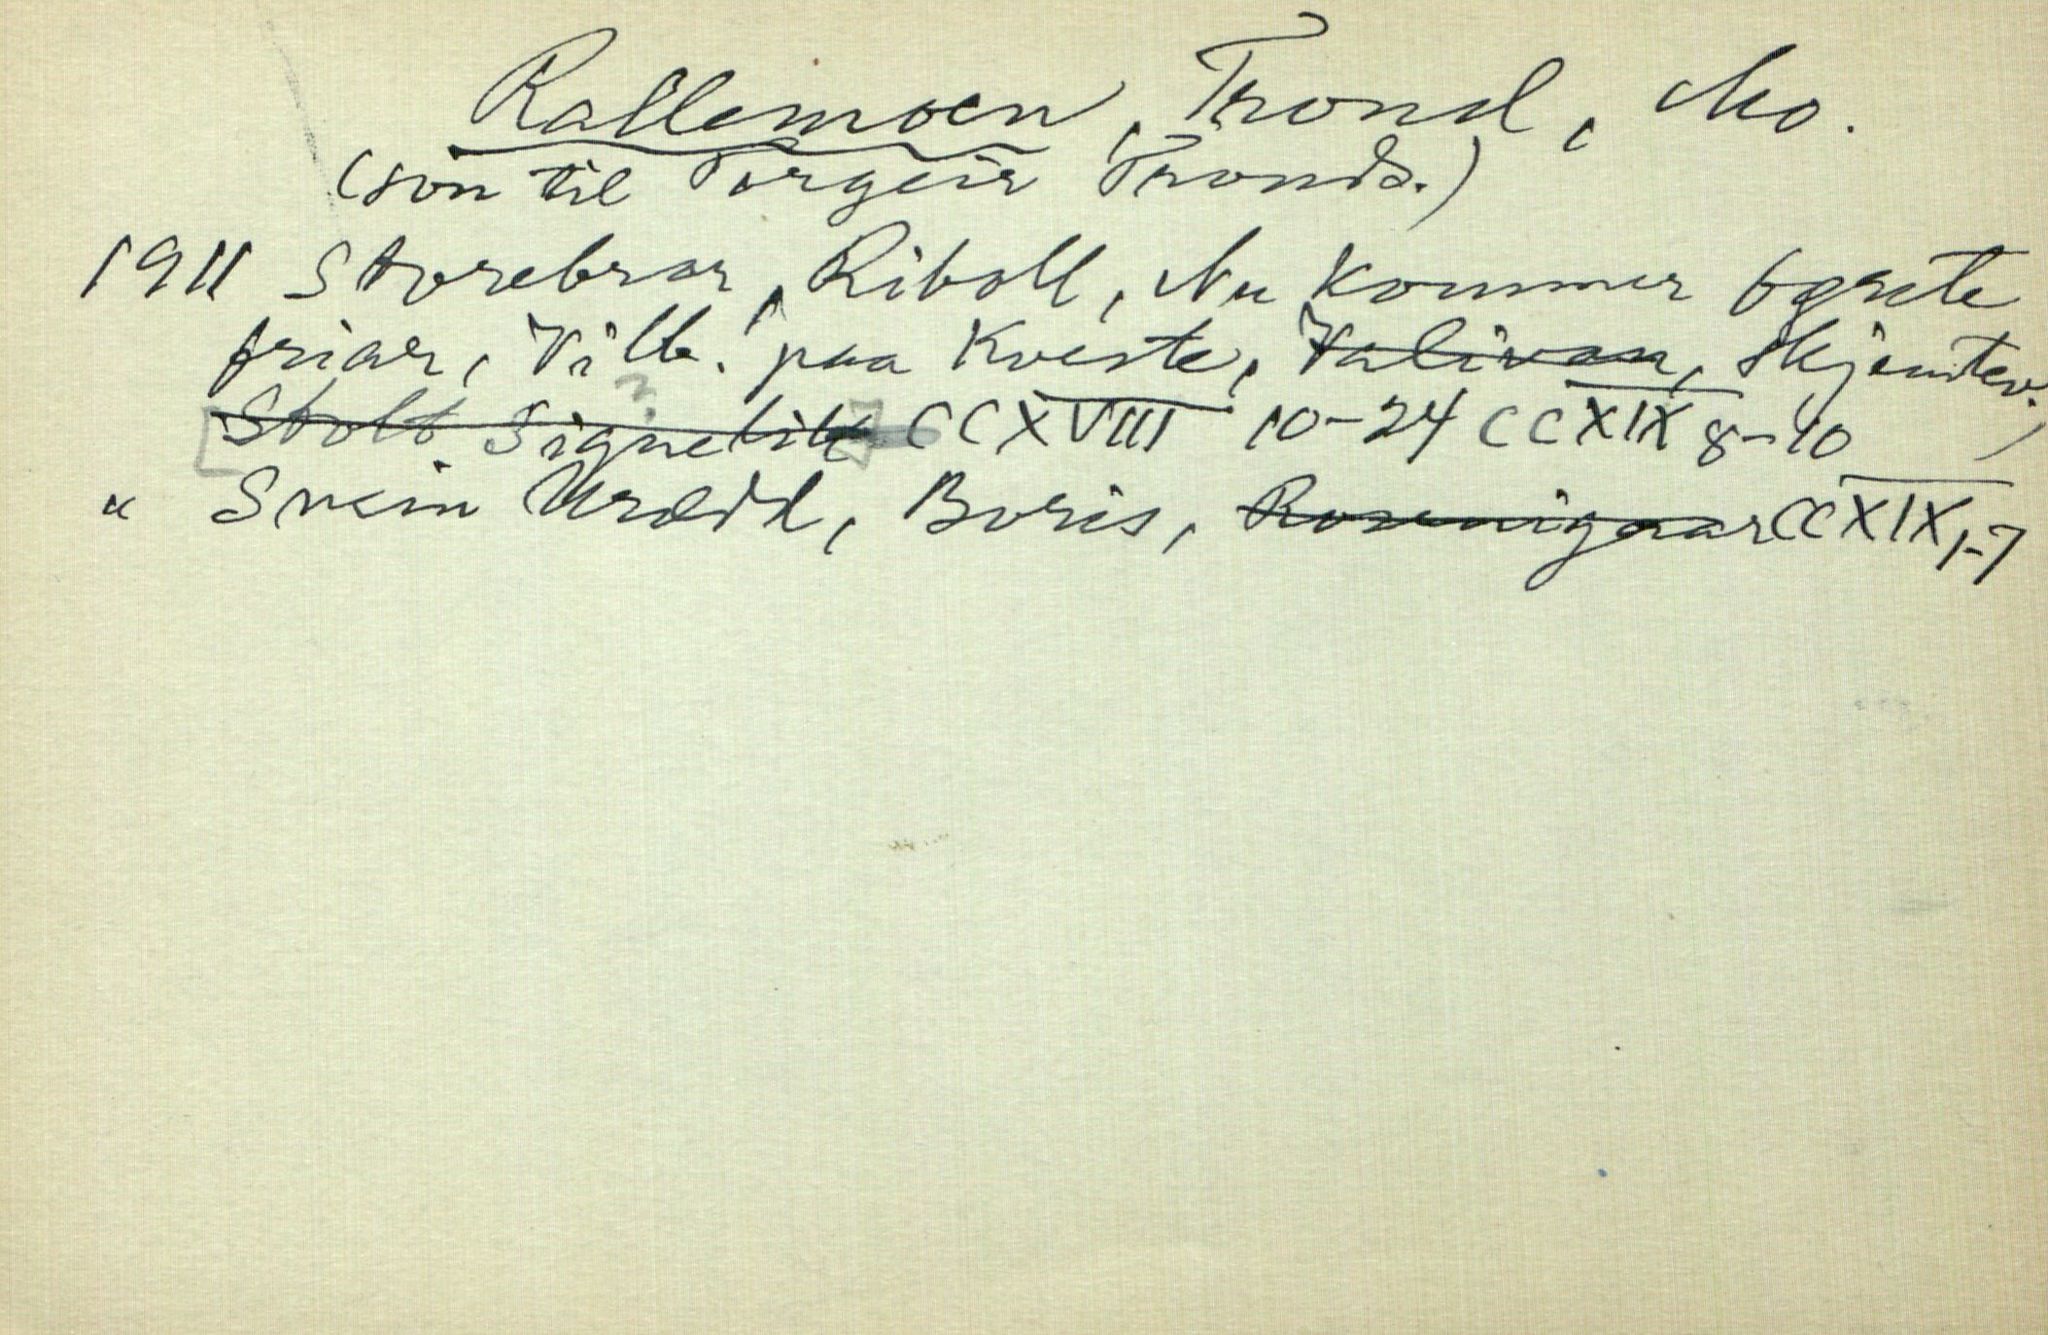 Rallemoen, Trond, Mo.
(son til Torgeir Tronds.)
1911 Storebror, Riboll, Nu kommer fyrste
friar, Ville. paa Kveste, Valivan, Skjentev.
Stolt Signelill CCXVIII 10-24 CCXIX 8-10
" Svein Urædd, Boris, CCXIX, 1-7